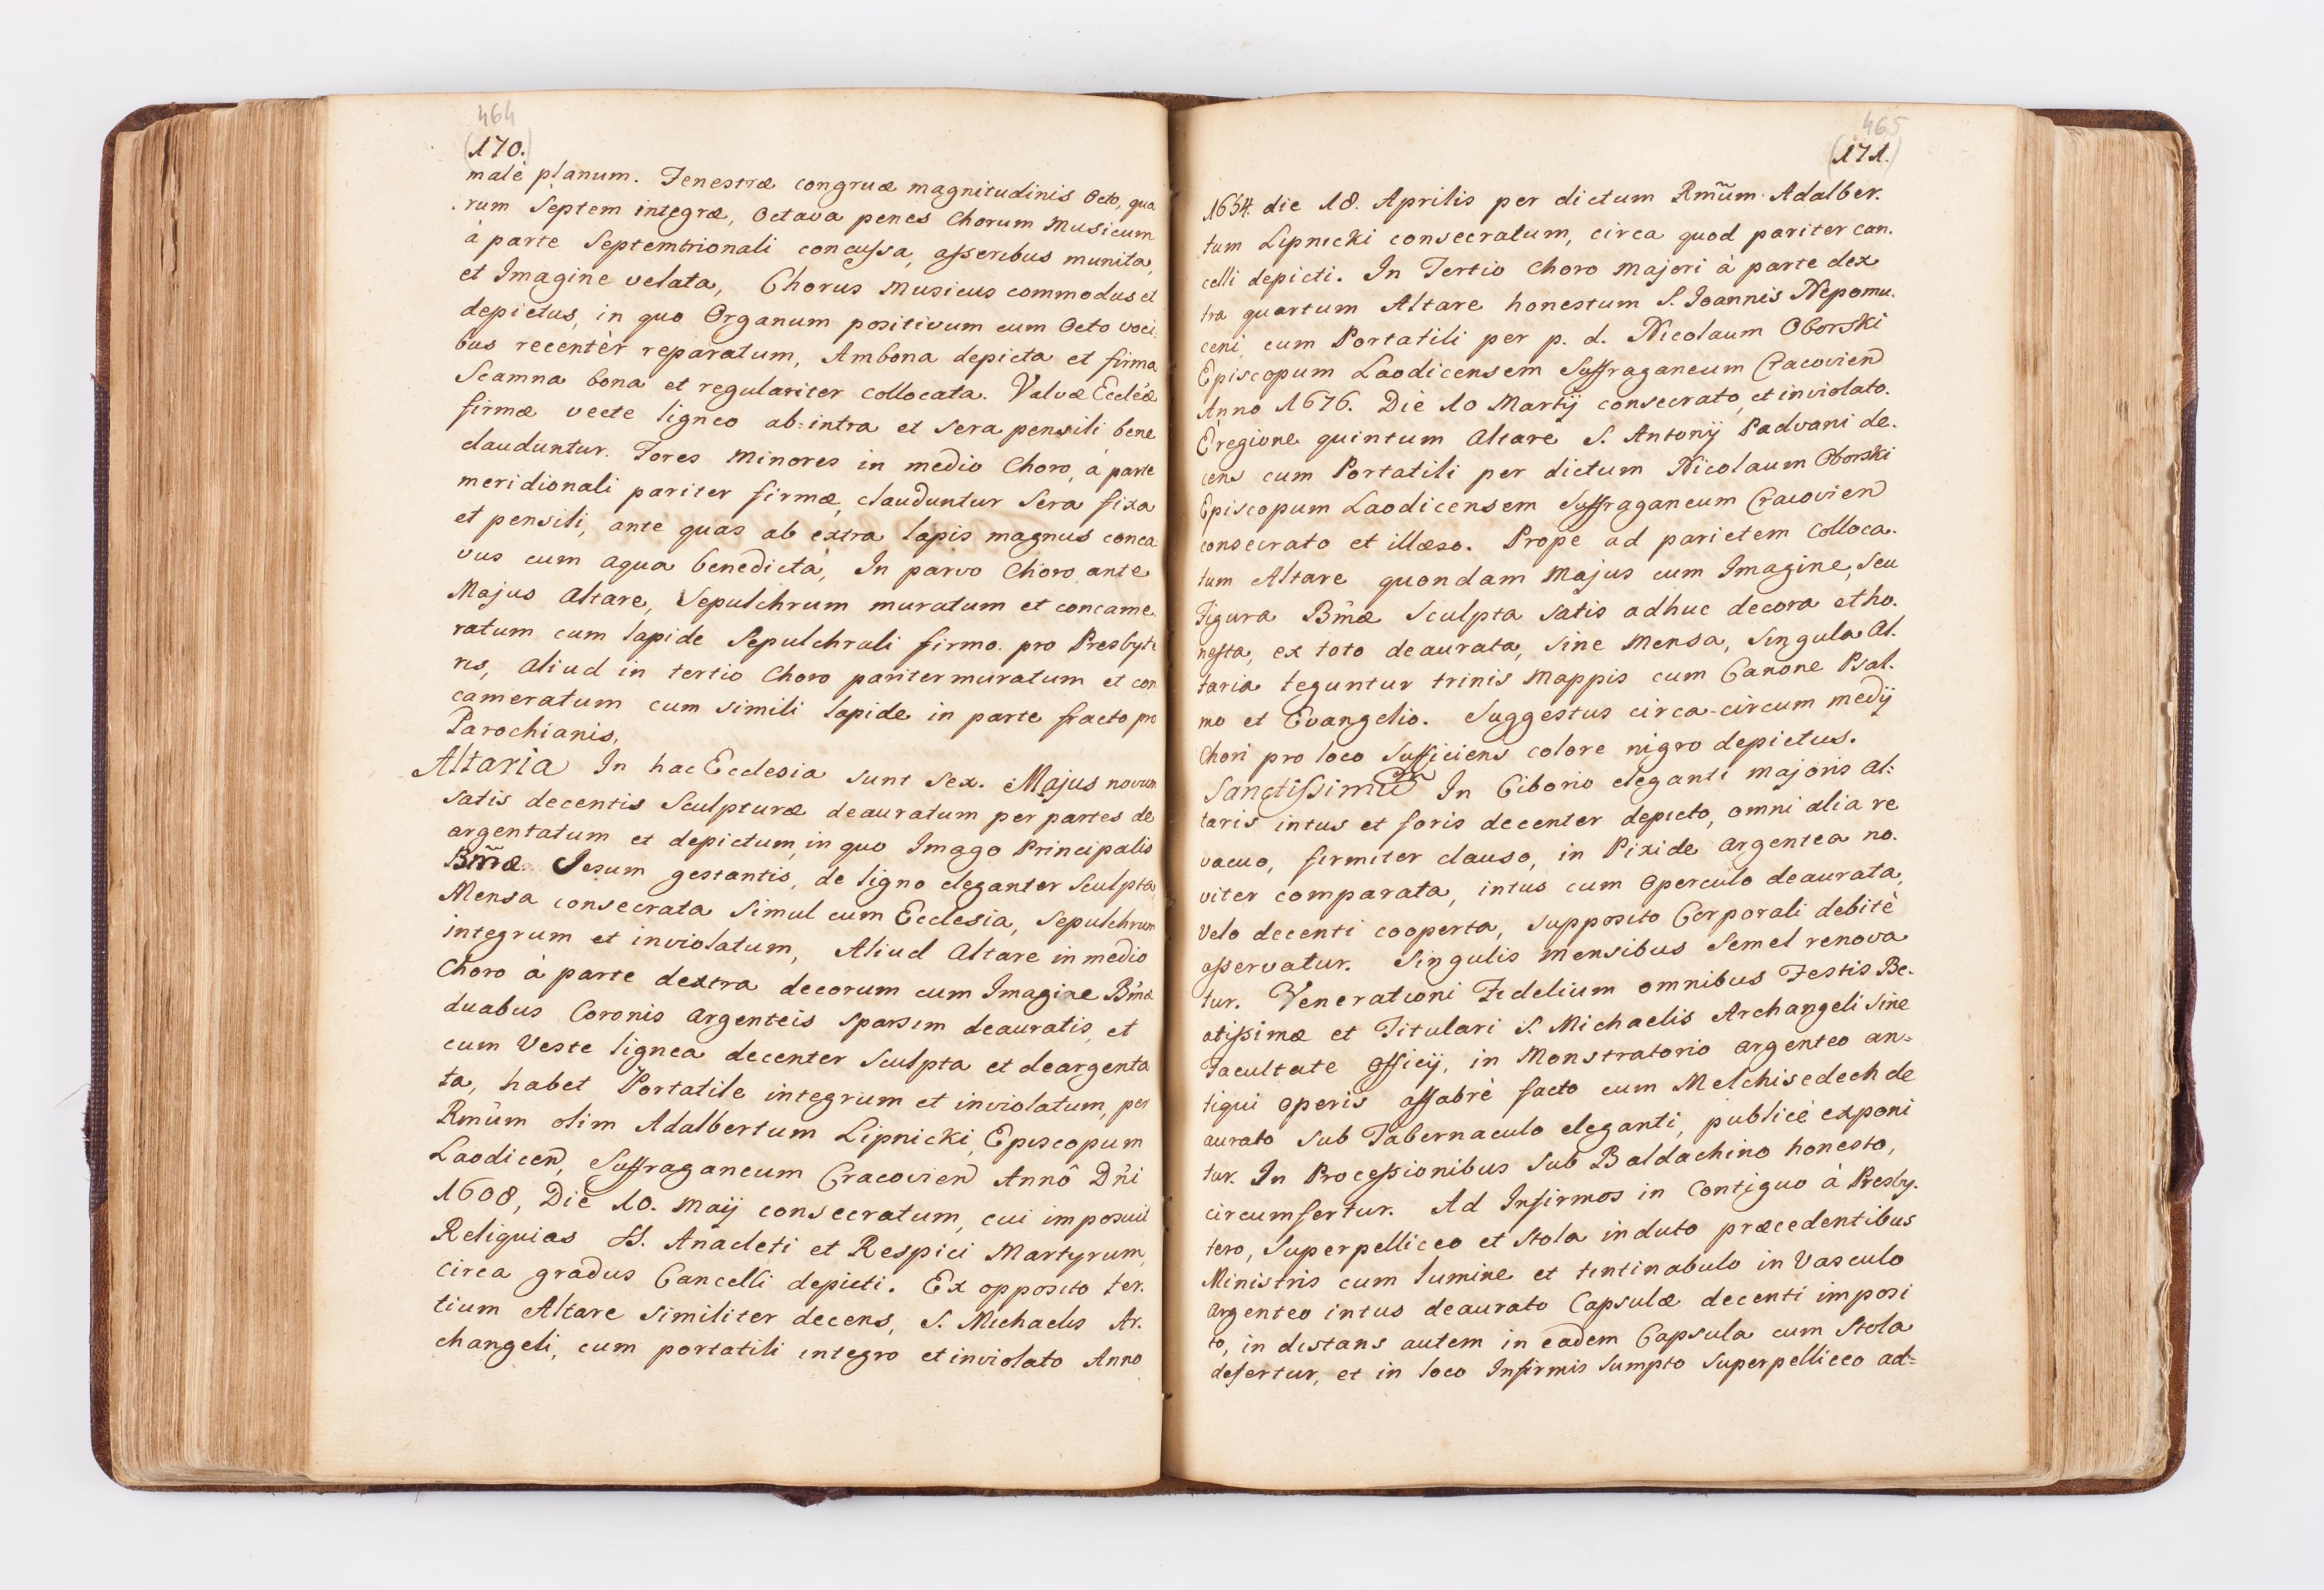 464
(170.)
malè planum. Fenestræ congruæ magnitudinis Octo, qua
rum Septem integræ, Octava penes Chorum Musicum
à parte Septemtrionali concussa, asseribus munita,
et Imagine velata, Chorus Musicus commodus et
depictus, in quo Organum positivum cum Octo voci
bus recentèr reparatum, Ambona depicta et firma
Scamna bona et regulariter collocata. Valvæ Eccl̃æ
firmæ vecte ligneo ab=intra et Sera pensili bene
clauduntur. Fores Minores in medio Choro, à parte
meridionali pariter firmæ, clauduntur Sera fixa
et pensili, ante quas ab extra lapis magnus conca
vus cum aqua benedicta, In parvo Choro ante
Majus Altare, Sepulchrum muratum et concame.
ratum cum lapide Sepulchrali firmo pro Presbyte
ris, Aliud in tertio Choro pariter muratum et con
cameratum cum simili lapide in parte fracto pro
Parochianis.
Altaria In hac Ecclesia sunt Sex. Majus novum
satis decentis Sculpturæ deauratum per partes de
argentatum et depictum, in quo Imago Principalis
Bm̃æ Jesum gestantis, de ligno eleganter Sculpta,
Mensa consecrata Simul cum Ecclesia, Sepulchrum
integrum et inviolatum, Aliud Altare in medio
Choro à parte dextra decorum cum Imagine Bm̃æ
duabus Coronis argenteis sparsim deauratis, et
cum Veste lignea decenter Sculpta et deargenta
ta, habet Portatile integrum et inviolatum, per
Rmũm olim Adalbertum Lipnicki, Episcopum
Laodicen, Suffraganeum Cracovien Annô Dñi
1608, Die 10. Maij consecratum, cui imposuit
Reliquias SS. Anacleti et Respici Martyrum,
circa gradus Cancelli depicti. Ex opposito ter.
tium Altare similiter decens, S. Michaelis Ar.
changeli, cum portatili integro et inviolato Anno
465
(171.)
1654. die 18. Aprilis per dictum Rmũm Adalber.
tum Lipnicki consecratum, circa quod pariter can.
celli depicti. In Tertio Choro majori à parte dex
tra quartum Altare honestum S. Joannis Nepomu.
ceni, cum Portatili per p. d. Nicolaum Oborski
Episcopum Laodicensem Suffraganeum Cracovien
Anno 1676. Die 10 Martij consecrato, et inviolato.
È regione quintum Altare S. Antonij Padvani de.
cens cum Portatili per dictum Nicolaum Oborski
Episcopum Laodicensem Suffraganeum Cracovien
consecrato et illæso. Prope ad parietem Colloca.
tum Altare quondam Majus cum Imagine, seu
Figura Bm̃æ Sculpta satis adhuc decora et ho.
nesta, ex toto deaurata, sine Mensa, Singula Al.
taria teguntur trinis Mappis cum Canone Psal.
mo et Evangelio. Suggestus circa-circum medij
Chori pro loco sufficiens colore nigro depictus.
Sanctissimũ In Ciborio eleganti majoris Al:
taris intus et foris decenter depicto, omni alia re
vacuo, firmiter clauso, in Pixide argentea no.
viter comparata, intus cum operculo deaurata,
velo decenti cooperta, supposito Corporali debitè
asservatur. Singulis mensibus Semel renova
tur. Venerationi Fidelium omnibus Festis Be.
atissimæ et Titulari S. Michaelis Archangeli sine
Facultate Officij, in Monstratorio argenteo an=
tiqui operis affabrè facto cum Melchisedech de
aurato sub Tabernaculo eleganti, publicè exponi
tur. In Processionibus sub Baldachino honesto,
circumfertur. Ad Infirmos in Contiguo à Presby.
tero, Superpelliceo et Stola induto præcedentibus
Ministris cum lumine et tintinabulo in Vasculo
argenteo intus deaurato Capsulæ decenti imposi
to, in distans autem in eadem Capsula cum Stola
defertur, et in loco Infirmis sumpto Superpelliceo ad=